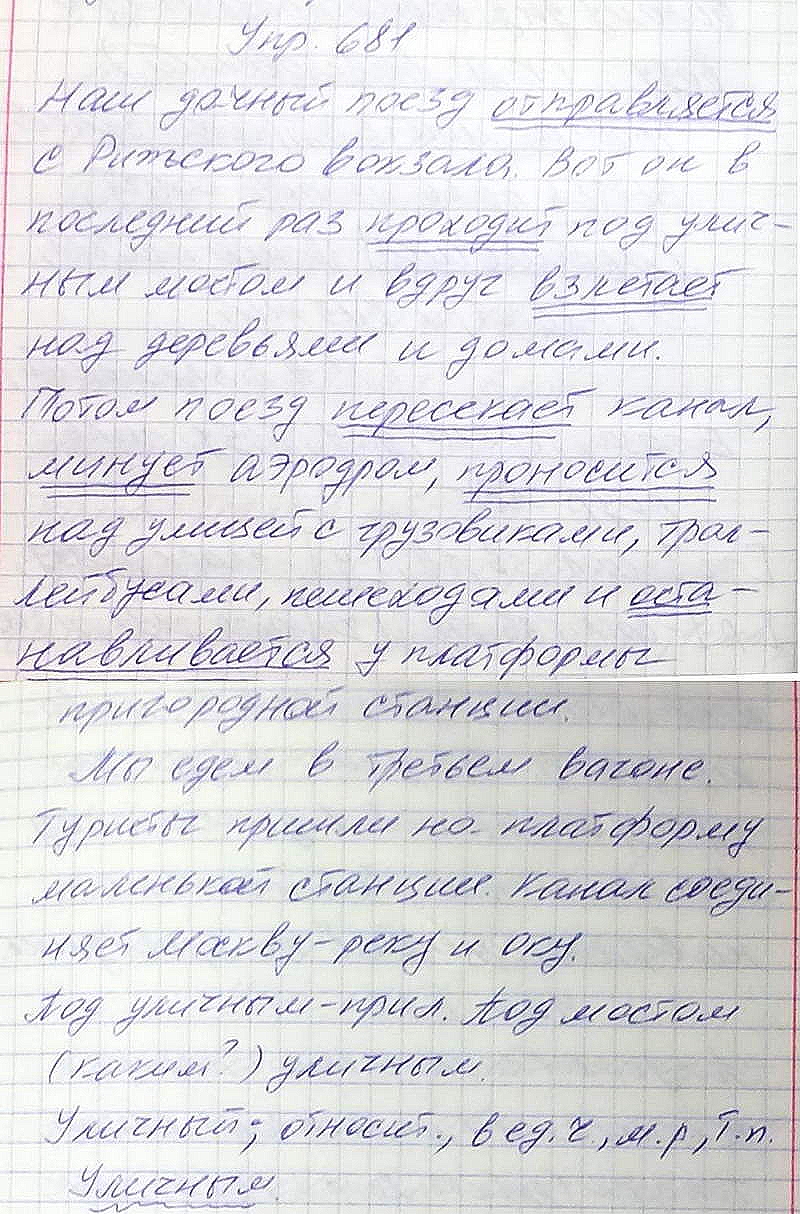 Упр. 681
Наш дачный поезд отправляется
с Рижского вокзала. Вот он в
последний раз проходит под улич-
ным мостом и вдруг взлетает
над деревьями и домами.
Потом поезд пересекает канал,
минует аэродром, проносится
над улицей с грузовиками, трол-
лейбусами, пешеходами и оста-
навливается у платформы
пригородной станции.
Мы едем в третьем вагоне.
Туристы пришли на платформу
маленькой станции. Канал соеди-
няет Москву-реку и Оку.
Под уличным-прил. Под мостом
(каким?) уличным.
Уличный; относит., в ед.ч., м.р., Т.п.
Уличным.